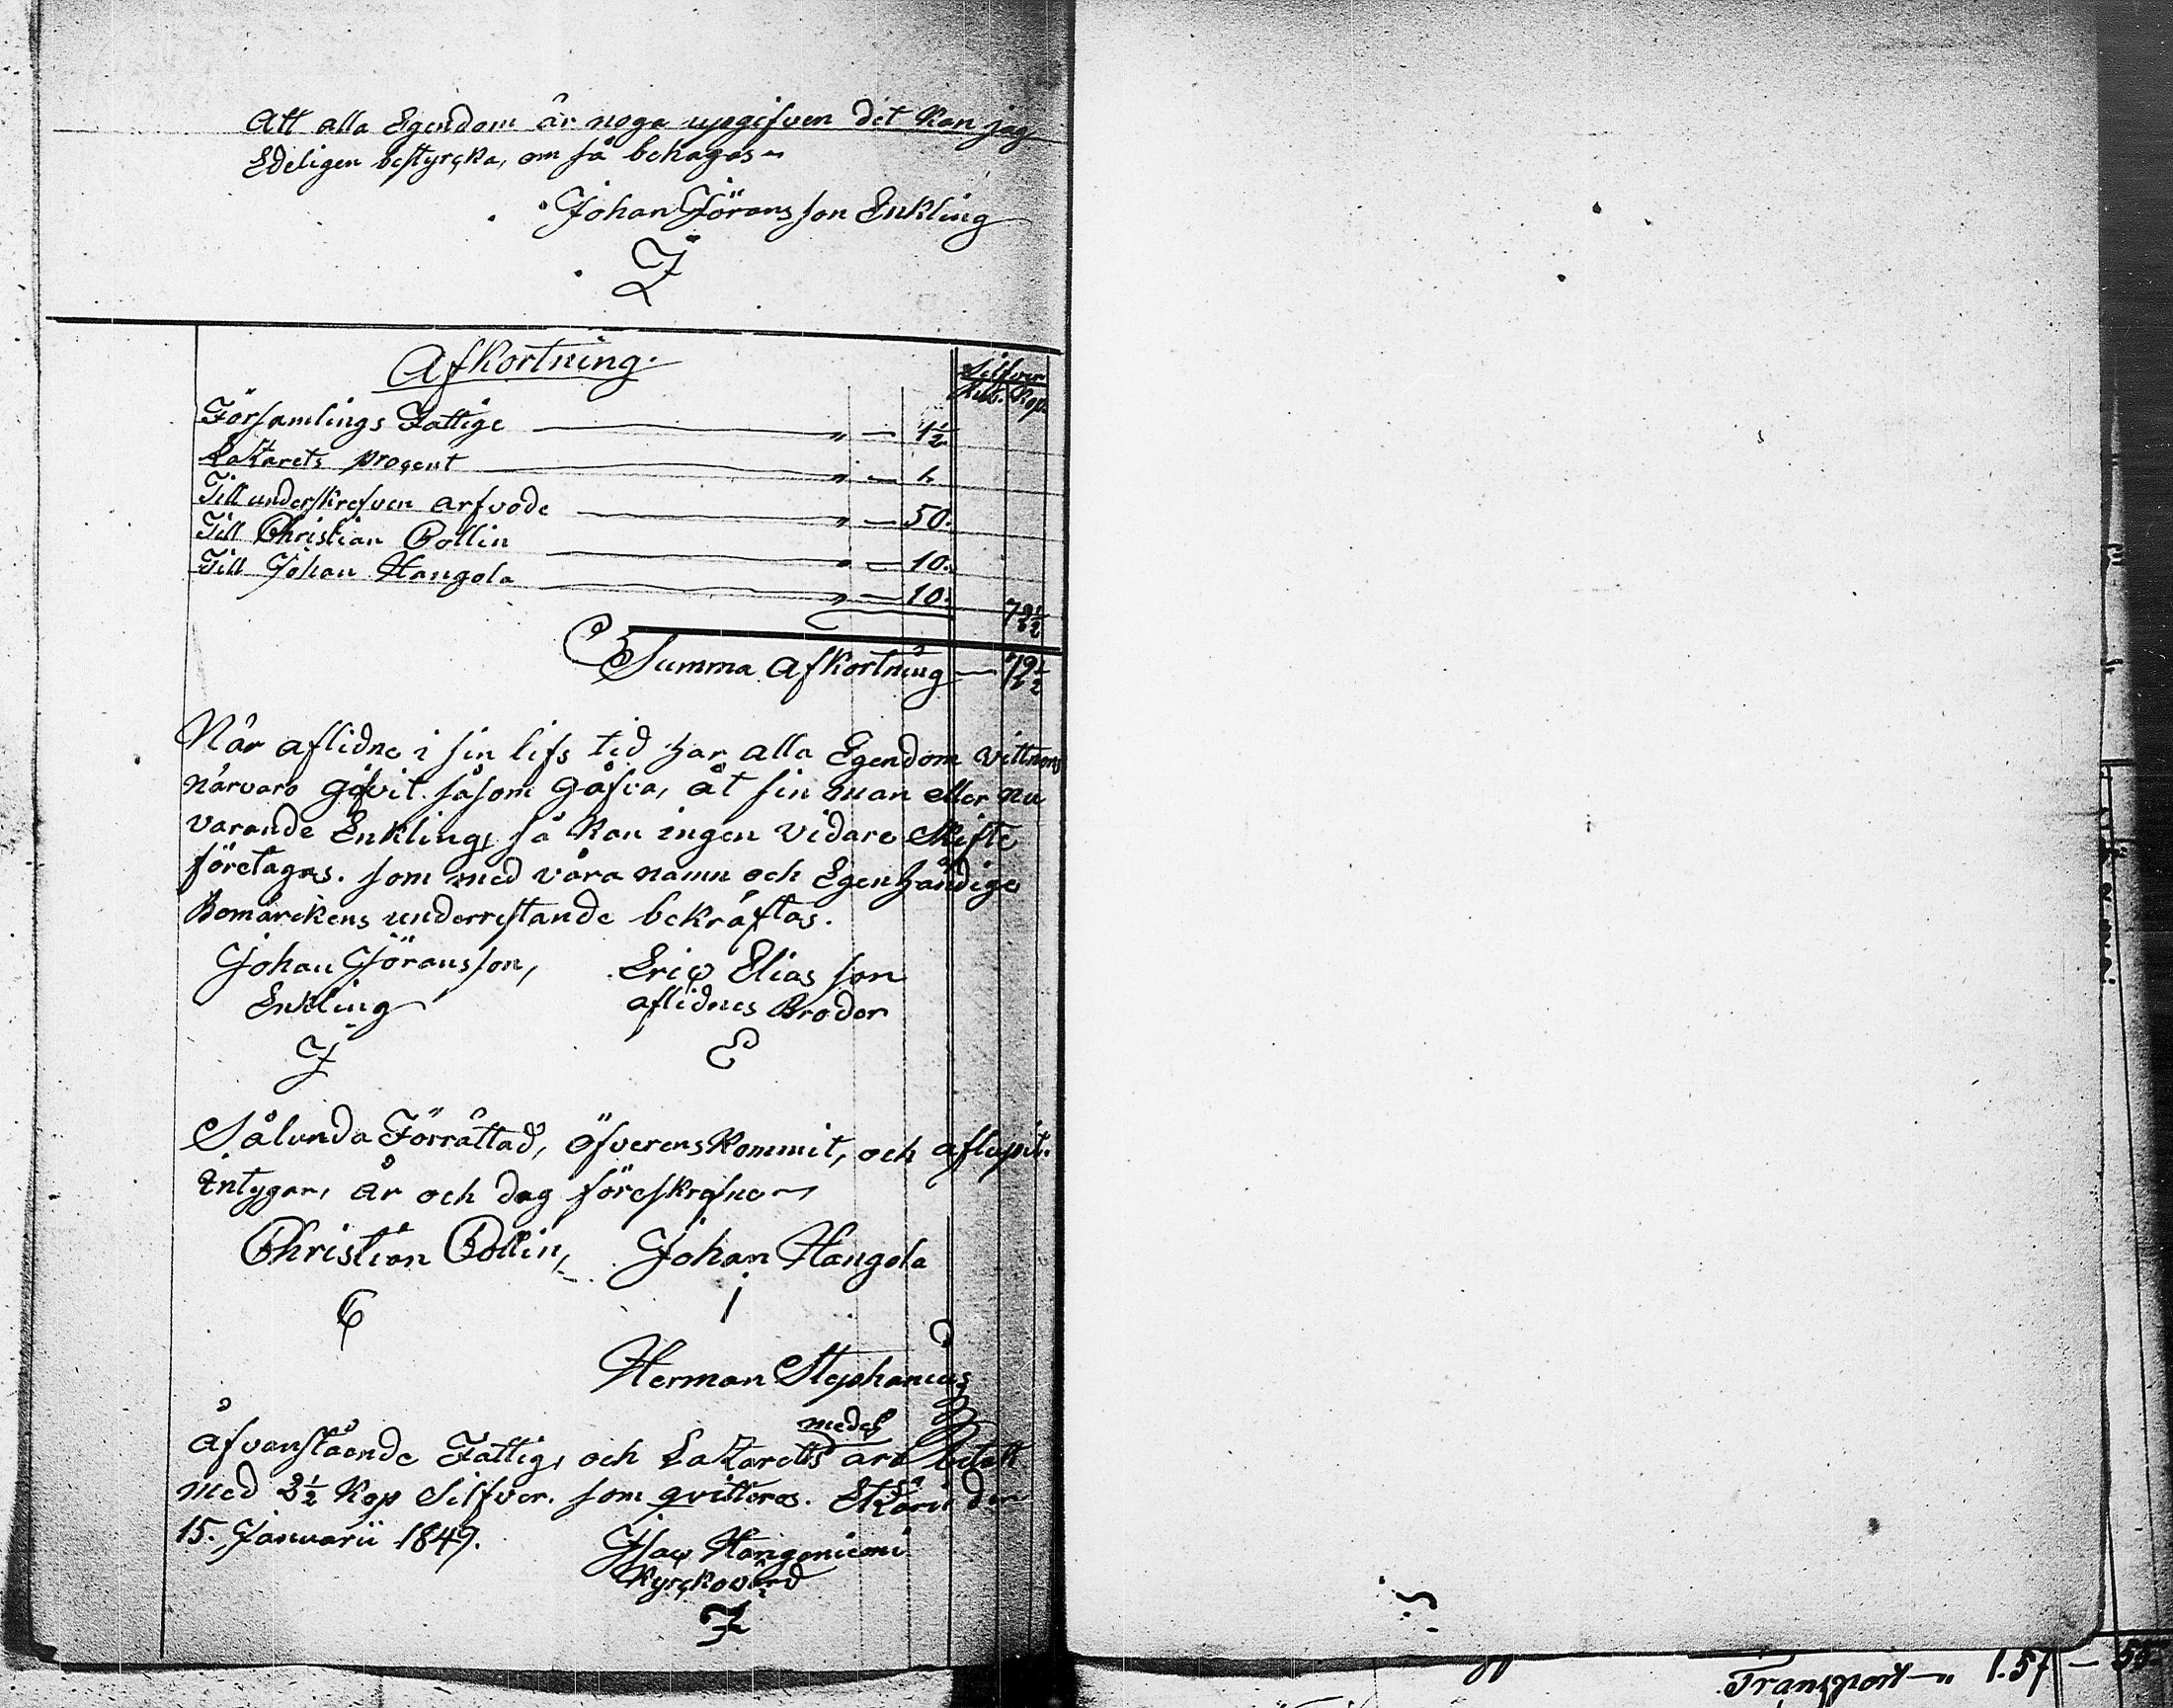 Att alla Egendom är noga upgifven det kan jag
Edeligen bestyrcka, om så behagas
Johan Jöransson Enkling
Afkortning.
Silfver
Rub. Kop.
Församlings Fattige — " — 1½
Latzarets procent — " —
Till underskrefven arfvode — " — 50.
Till Christian Collin — " — 10.
Till Johan Hangola — " — 10.
Summa Afkortning —
När aflidne i sin lifs tid har alla Egendom vittnens
närvaro gifvit såsom gåfva, åt sin man eller nu
varande Enkling, så kan ingen vidare skifte
företagas. som med våra namn och Egenhändige
Bomärckens underristande bekräftas.
Johan Jöransson, Eric Elias son
Enkling aflidnes Broder
J E
Sålunda Förrättad, öfverenskommit, och aflupit.
Intygar, år och dag föreskrefne
Christian Collin, Johan Hangola
Herman Stephanius
medel
Åfvanstående Fattig, och Latzaretts äro betalt
med 2½ Kop Silfver. som qvitteras. den
15. Januarii 1849.
Isac Hangoniemi
Kyrckovärd
Transport " 1.57 —